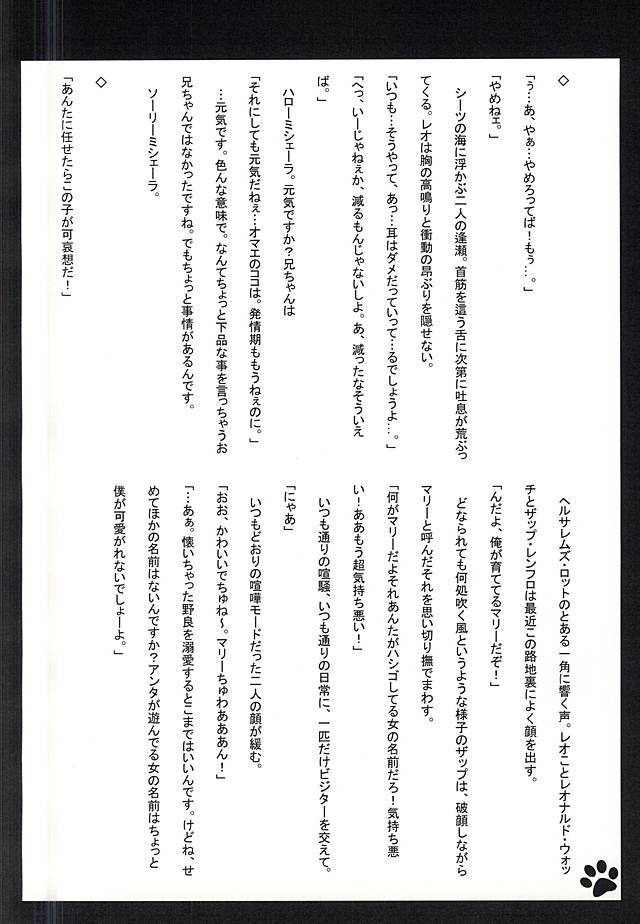 ◇
「ぅ…あ、やぁ…やめろってば！もぅ…。」
「やめねェ。」
　シーツの海に浮かぶ二人の逢瀬。首筋を這う舌に次第に吐息が荒ぶっ
てくる。レオは胸の高鳴りと衝動の昂ぶりを隠せない。
「いつも…そうやって、あっ…耳はダメだっていって…るでしょうよ…。」
「へっ、いーじゃねぇか、減るもんじゃないしよ。あ、減ったなそういえ
ば。」
　ハローミシェーラ。元気ですか？兄ちゃんは
「それにしても元気だねぇ…オマエのココは。発情期ももうねぇのに。」
　…元気です。色んな意味で。なんてちょっと下品な事を言っちゃうお
兄ちゃんではなかったですね。でもちょっと事情があるんです。
　ソーリーミシェーラ。
◇
「あんたに任せたらこの子が可哀想だ！」
　ヘルサレムズ・ロットのとある一角に響く声。レオことレオナルド・ウォッ
チとザップ・レンフロは最近この路地裏によく顔を出す。
「んだよ、俺が育ててるマリーだぞ！」
　どなられても何処吹く風というような様子のザップは、破顔しながら
マリーと呼んだそれを思い切り撫でまわす。
「何がマリーだよそれあんたがハシゴしてる女の名前だろ！気持ち悪
い！ああもう超気持ち悪い！」
　いつも通りの喧騒、いつも通りの日常に、一匹だけビジターを交えて。
「にゃあ」
　いつもどおりの喧嘩モードだった二人の顔が緩む。
「おお、かわいいでちゅね～。マリーちゅわああん！」
「…あぁ。懐いちゃった野良を溺愛するとこまではいいんです。けどね、せ
めてほかの名前はないんですか？アンタが遊んでる女の名前はちょっと
僕が可愛がれないでしょーよ。」